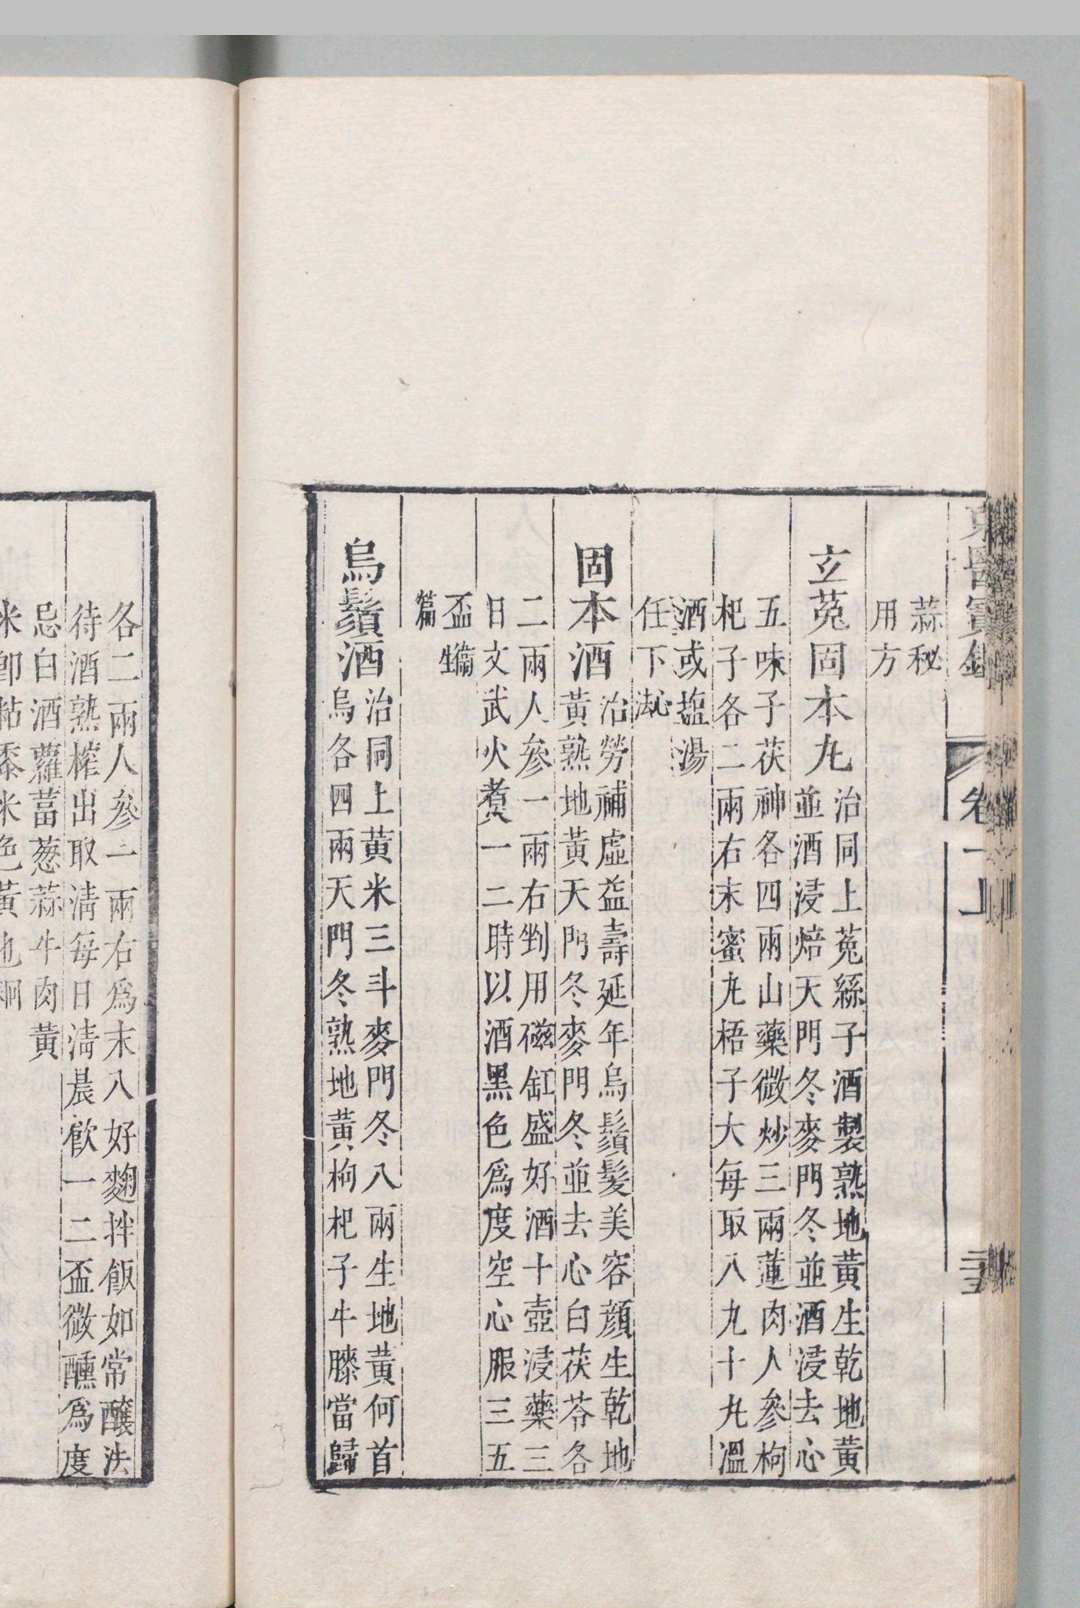 蒜秘
用方
玄菟固本丸
治同上菟絲子酒製熟地黃生乾地黃
並酒浸焙天門冬麥門冬並酒浸去心
五味子茯神各四兩山藥微炒三兩蓮肉人參枸
杞子各二兩右末蜜丸梧子大每取八九十丸溫
酒或塩湯
任下心法
固本酒
治勞補虛益壽延年烏鬚髮美容顏生乾地
黃熟地黃天門冬麥門冬並去心白茯苓各
二兩人參一兩右剉用磁缸盛好酒十壺浸藥三
日文武火煑一二時以酒黑色爲度空心服三五
盃
篇
烏鬚酒
治同上黃米三斗麥門冬八兩生地黃何首
烏各四兩天門冬熟地黃枸杞子牛膝當歸
各二兩人參一兩右爲末入好麴拌飯如常釀法
待酒熟榨出取淸每日淸晨飮一二盃微醺爲度
忌白酒蘿葍葱蒜牛肉黃
米卽粘黍米色黃也